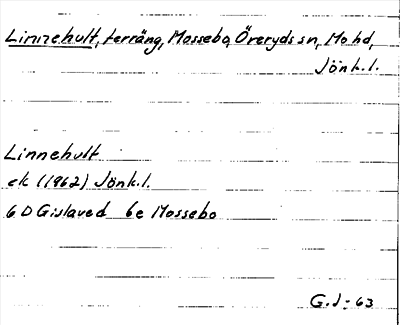 Linnehult, terräng, Mossebo, Öreryds sn, Mo hd,
Jönk.l.
Linnehult
ek (1962) Jönk.l.
6 D Gislaved 6e Mossebo
G.J-63